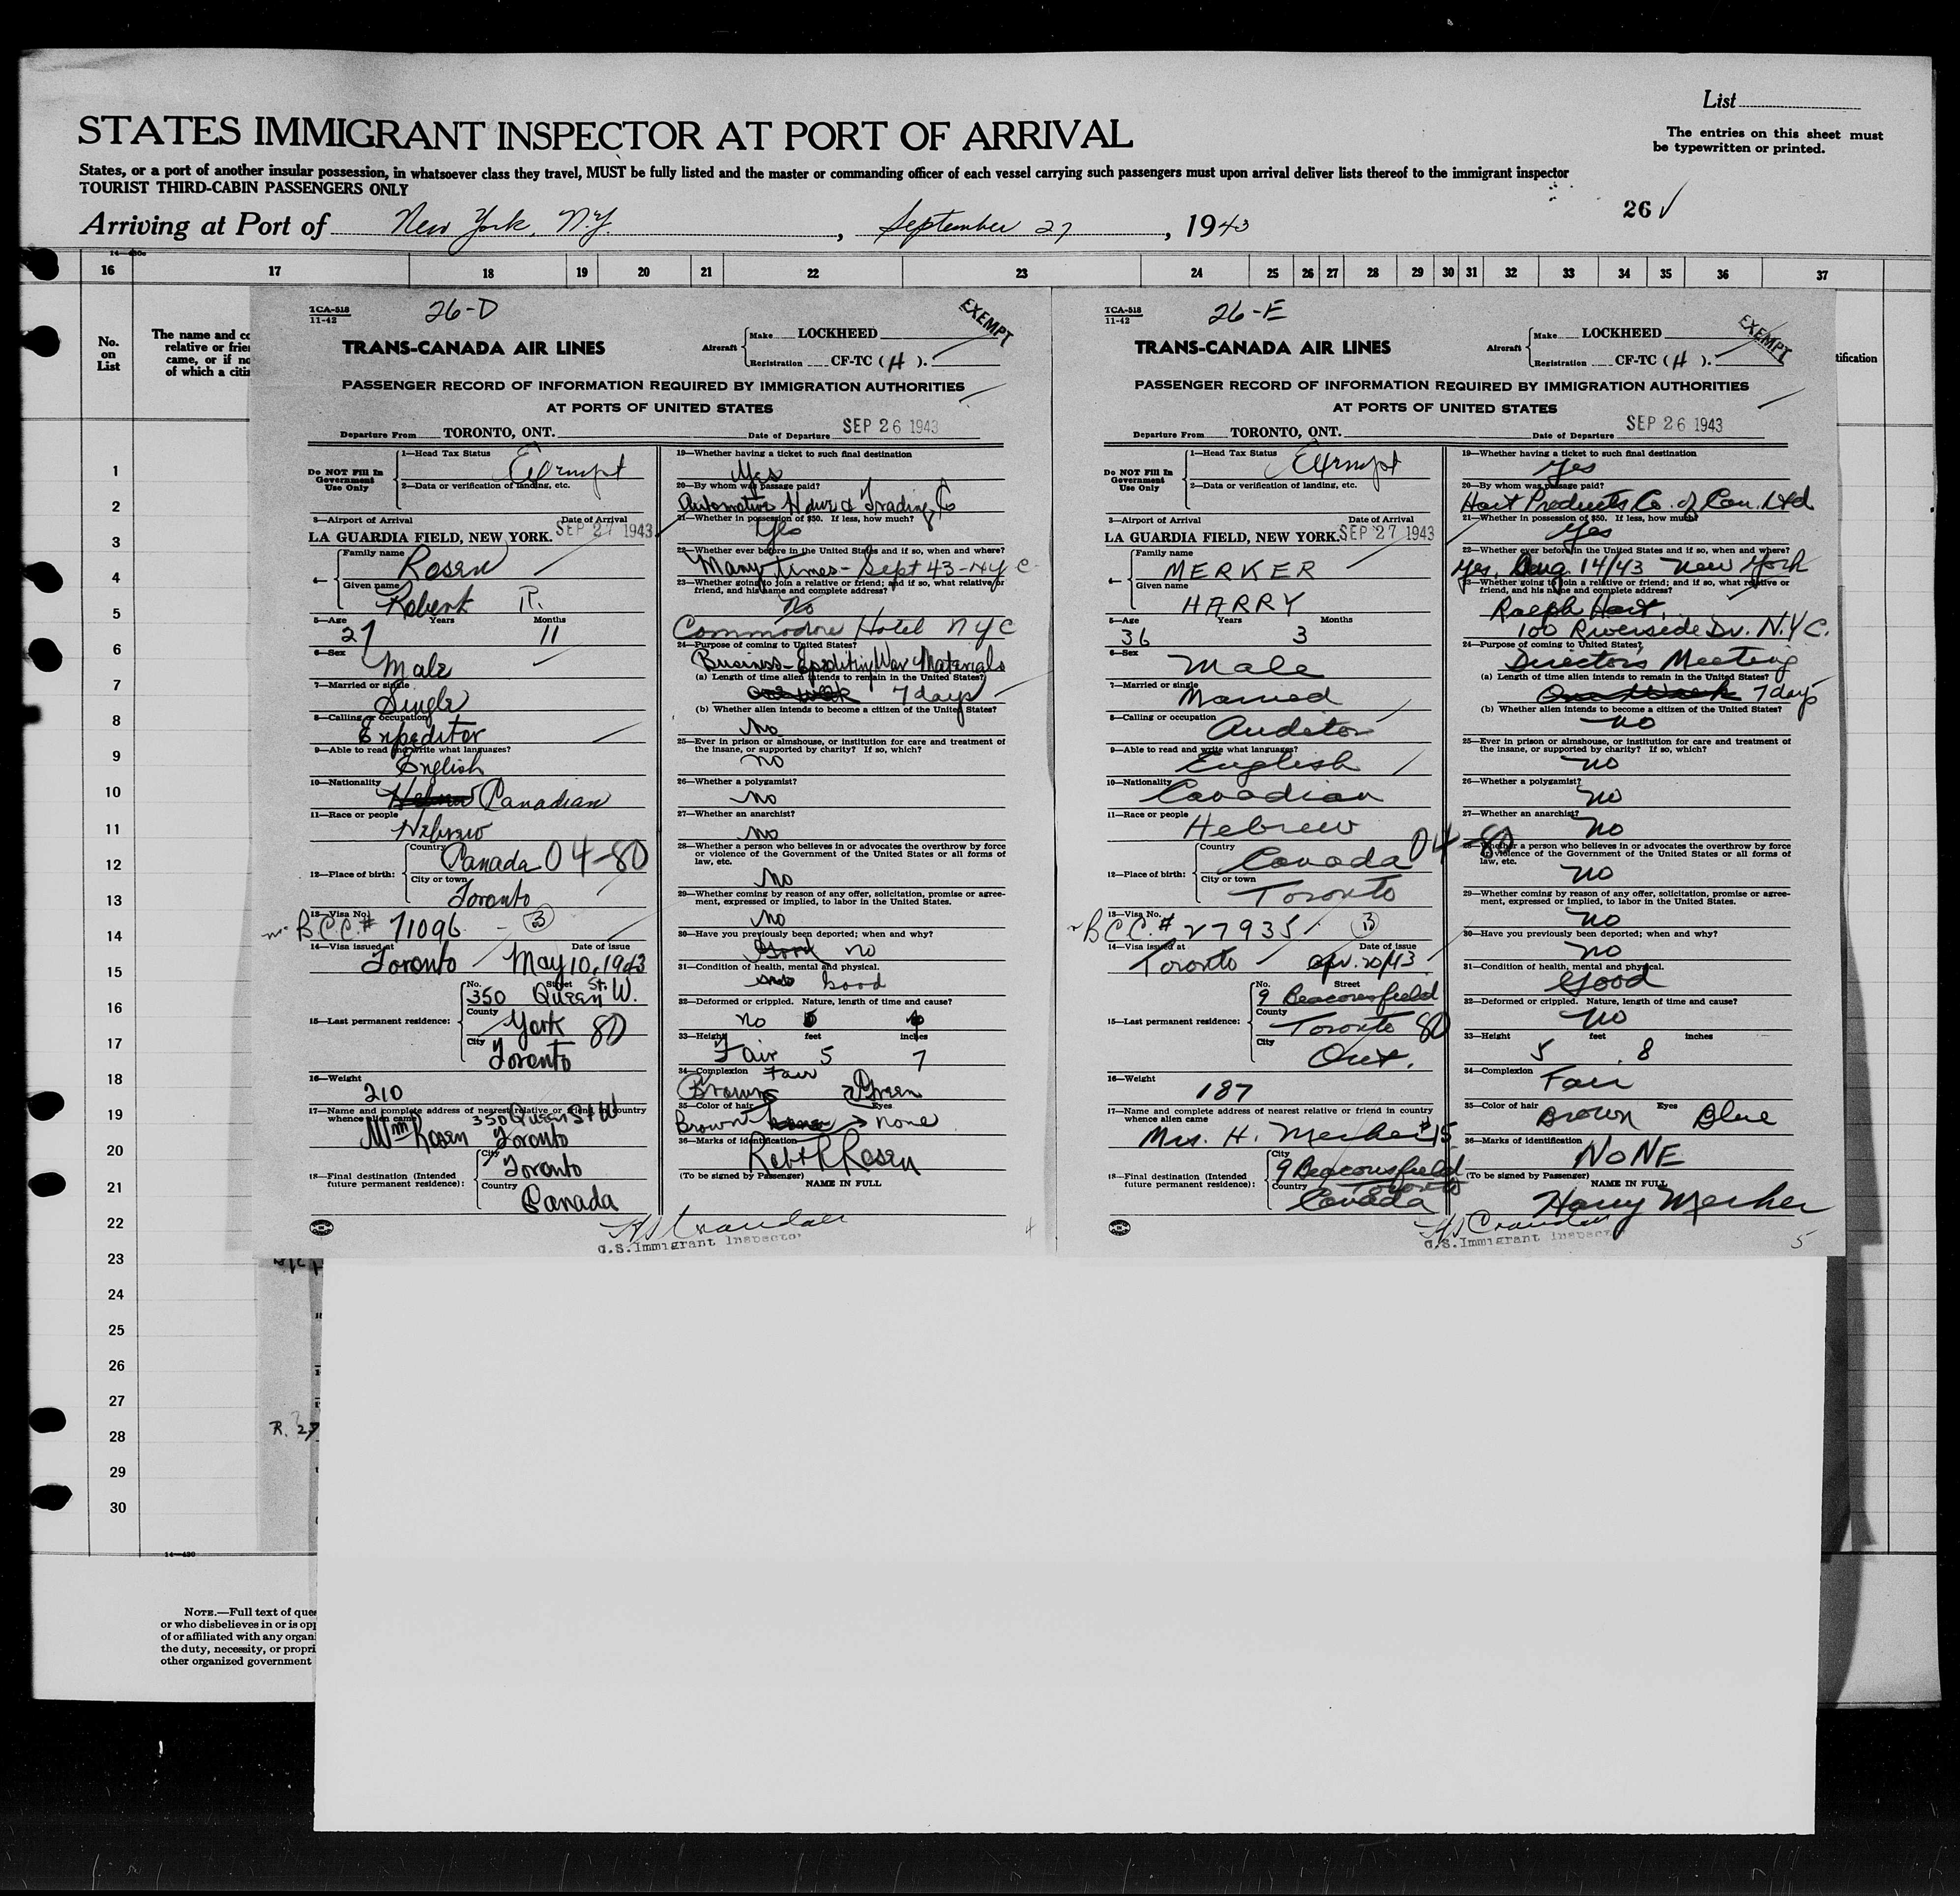 List
STATES IMMIGRANT INSPECTOR AT PORT OF ARRIVAL
The entries on this sheet must
be typewritten or printed.
States, or a port of another insular possession, in whatsoever class they travel, MUST be fully listed and the master or commanding officer of each vessel carrying such passengers must upon arrival deliver lists thereof to the immigrant inspector
TOURIST THIRD-CABIN PASSENGERS ONLY
26
Arriving at Port of New York, N.Y., September 27, 1943
16 17 18 19 20 21 22 23 24 25 26 27 28 29 30 31 32 33 34 35 36 37
No.
on
List
The name and co
relative or frie
came, or if no
of which a citi
tification
1
2
3
4
5
6
7
8
9
10
11
12
13
14
15
16
17
18
19
20
21
22
23
24
25
26
27
28
29
30
TCA-518
11-42
26-D
EXEMPT
TRANS-CANADA AIR LINES
Aircraft Make LOCKHEED
Registration CF-TC (H).
PASSENGER RECORD OF INFORMATION REQUIRED BY IMMIGRATION AUTHORITIES
AT PORTS OF UNITED STATES
Departure From TORONTO, ONT.
Date of Departure SEP 26 1943
Do NOT Fill In
Government
Use Only
1—Head Tax Status Exempt
2—Data or verification of landing, etc.
3—Airport of Arrival Date of Arrival
LA GUARDIA FIELD, NEW YORK. SEP 27 1943
4— Family name Rosen
Given name Robert R.
5—Age 27 Years 11 Months
6—Sex Male
7—Married or single Single
8—Calling or occupation Expeditor
9—Able to read and write what languages? English
10—Nationality Hebrew Canadian
11—Race or people Hebrew
12—Place of birth: Country Canada 04-80
City or town Toronto
13—Visa No. B.C.C.# 71096 3
14—Visa issued at Toronto Date of issue May 10, 1943
15—Last permanent residence: No. 350 Street Queen St. W.
County York 80
City Toronto
16—Weight 210
17—Name and complete address of nearest relative or friend in country
whence alien came 350 Queen St W
Wm Rosen Toronto
18—Final destination (Intended
future permanent residence): City Toronto
Country Canada
19—Whether having a ticket to such final destination
Yes
20—By whom was passage paid?
Automotive Hdwe & Trading Co
21—Whether in possession of $50. If less, how much?
Yes
22—Whether ever before in the United States and if so, when and where?
Many times - Sept 43 - NYC
23—Whether going to join a relative or friend; and if so, what relative or
friend, and his name and complete address?
No
Commodore Hotel NYC
24—Purpose of coming to United States?
Business - Expediting War Materials
(a) Length of time alien intends to remain in the United States?
One week 7 days
(b) Whether alien intends to become a citizen of the United States?
No
25—Ever in prison or almshouse, or institution for care and treatment of
the insane, or supported by charity? If so, which?
No
26—Whether a polygamist?
No
27—Whether an anarchist?
No
28—Whether a person who believes in or advocates the overthrow by force
or violence of the Government of the United States or all forms of
law, etc.
No
29—Whether coming by reason of any offer, solicitation, promise or agree-
ment, expressed or implied, to labor in the United States.
No
30—Have you previously been deported; when and why?
Good no
31—Condition of health, mental and physical.
Good
32—Deformed or crippled. Nature, length of time and cause?
No
33—Height feet inches
Fair 5 7
34—Complexion Fair
Brown Green
35—Color of hair Eyes
Brown none
36—Marks of identification
Robt R Rosen
(To be signed by Passenger) NAME IN FULL
H S Crandall
U.S. Immigrant Inspector
4
TCA-518
11-42
26-E
EXEMPT
TRANS-CANADA AIR LINES
Aircraft Make LOCKHEED
Registration CF-TC (H).
PASSENGER RECORD OF INFORMATION REQUIRED BY IMMIGRATION AUTHORITIES
AT PORTS OF UNITED STATES
Departure From TORONTO, ONT.
Date of Departure SEP 26 1943
Do NOT Fill In
Government
Use Only
1—Head Tax Status Exempt
2—Data or verification of landing, etc.
3—Airport of Arrival Date of Arrival
LA GUARDIA FIELD, NEW YORK. SEP 27 1943
4— Family name MERKER
Given name HARRY
5—Age 36 Years 3 Months
6—Sex Male
7—Married or single Married
8—Calling or occupation Auditor
9—Able to read and write what languages? English
10—Nationality Canadian
11—Race or people Hebrew
12—Place of birth: Country Canada 04-80
City or town Toronto
13—Visa No. B.C.C.# 27935 3
14—Visa issued at Toronto Date of issue Apr. 20/43
15—Last permanent residence: No. 9 Street Beaconsfield
County Toronto 80
City Ont.
16—Weight 187
17—Name and complete address of nearest relative or friend in country
whence alien came
Mrs. H. Merker #15
18—Final destination (Intended
future permanent residence): City 9 Beaconsfield
Toronto
Country Canada
19—Whether having a ticket to such final destination
Yes
20—By whom was passage paid?
Hart Products Co. of Can. Ltd
21—Whether in possession of $50. If less, how much?
Yes
22—Whether ever before in the United States and if so, when and where?
Yes, Aug 14/43 New York
23—Whether going to join a relative or friend; and if so, what relative or
friend, and his name and complete address?
Ralph Hart,
100 Riverside Dr. N.Y.C.
24—Purpose of coming to United States?
Directors Meeting
(a) Length of time alien intends to remain in the United States?
One Week 7 days
(b) Whether alien intends to become a citizen of the United States?
No
25—Ever in prison or almshouse, or institution for care and treatment of
the insane, or supported by charity? If so, which?
No
26—Whether a polygamist?
No
27—Whether an anarchist?
No
28—Whether a person who believes in or advocates the overthrow by force
or violence of the Government of the United States or all forms of
law, etc.
No
29—Whether coming by reason of any offer, solicitation, promise or agree-
ment, expressed or implied, to labor in the United States.
No
30—Have you previously been deported; when and why?
No
31—Condition of health, mental and physical.
Good
32—Deformed or crippled. Nature, length of time and cause?
No
33—Height 5 feet 8 inches
34—Complexion Fair
35—Color of hair Brown Eyes Blue
36—Marks of identification
NONE
(To be signed by Passenger) NAME IN FULL
Harry Merker
H S Crandall
U.S. Immigrant Inspector
5
R. 27
14—430
NOTE.—Full text of que
or who disbelieves in or is opp
of or affiliated with any organ
the duty, necessity, or propri
other organized government